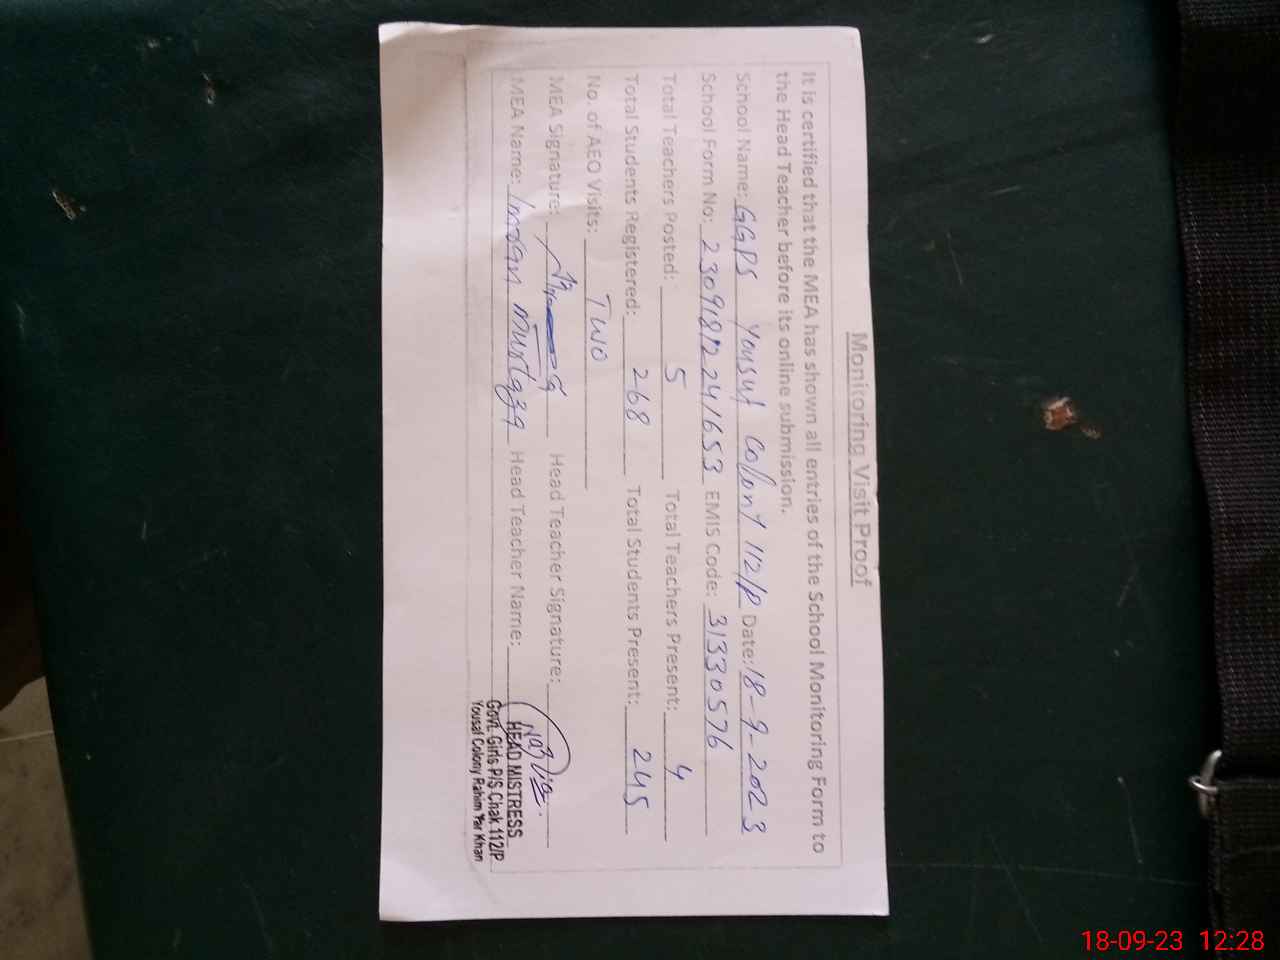 Monitoring Visit Proof
It is certified that the MEA has shown all entries of the School Monitoring Form to
the Head Teacher before its online submission.
School Name: GGPS Yousuf Collony 112/P Date: 18-9-2023
School Form No: EMIS Code: 31330576
Total Teachers Posted: 5 Total Teachers Present: 4
Total Students Registered: 268 Total Students Present: 245
No. of AEO Visits: TWO
MEA Signature: Head Teacher Signature:
MEA Name: Mustafa Head Teacher Name:
HEAD MISTRESS
Govt. Girls P/S Chak 112/P
Yousaf Colony Rahim Yar Khan
18-09-23 12:28